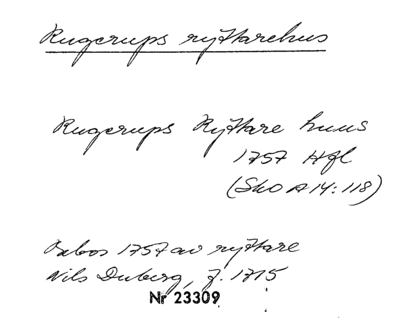 Rugerups ryttarehus
Rugerups Ryttare huus
1757 Hfl
(Sko A 14:118)
Bebos 1757 av ryttare
Nils Duberg, f. 1715
Nr 23309